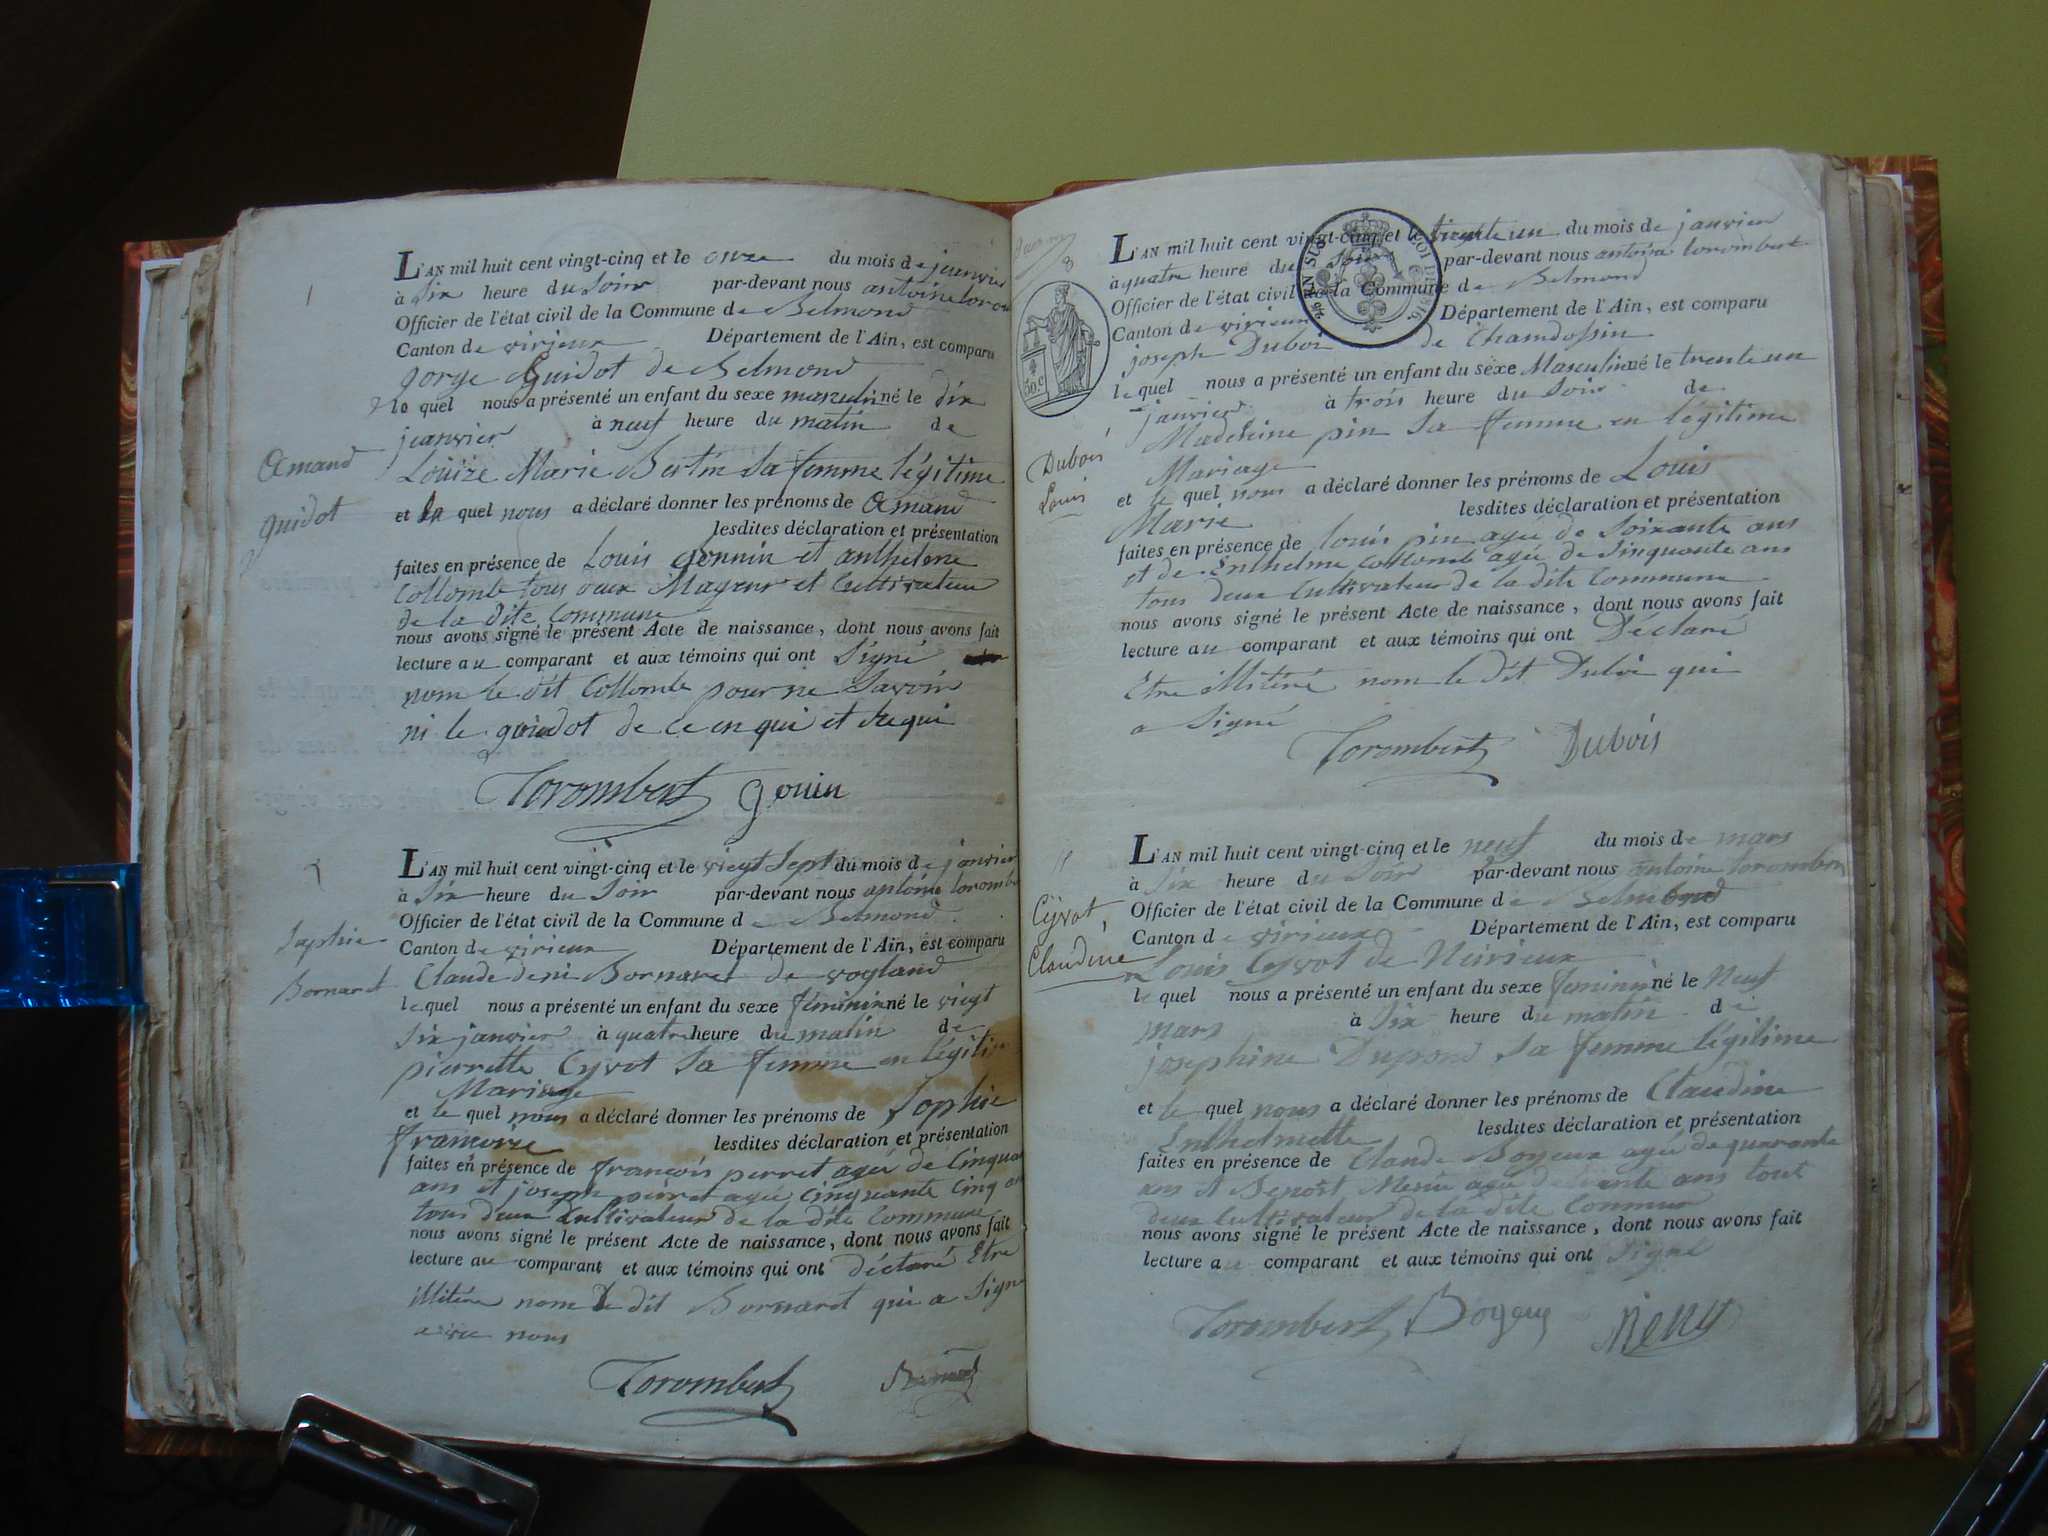 L'AN mil huit cent vingt-cinq et le onze du mois de jeanvier
à Six heure du Soir par-devant nous antoine torom
Officier de l'état civil de la Commune de Belmond
Canton de virieux Département de l'Ain, est comparu
gorge Guidot de Belmond
le quel nous a présenté un enfant du sexe masculin né le dix
jeanvier à neuf heure du matin de
Amand
Louize Marie Bertin Sa femme légitime
et le quel nous a déclaré donner les prénoms de Amand
guidot
lesdites déclaration et présentation
faites en présence de Louis gonnin et anthelme
Collomb tous deux Mageur et Cultivateur
de la dite Commune
nous avons signé le présent Acte de naissance, dont nous avons fait
lecture au comparant et aux témoins qui ont Signé
nom le dit Collomb pour ne Savoir
ni le guidot de ce enqui et Requi
Torombert gouin
2
L'AN mil huit cent vingt-cinq et le viegt Sept du mois de janvier
à Six heure du Soir par-devant nous antoine torombe
Officier de l'état civil de la Commune de Belmond
Canton de virieux Département de l'Ain, est comparu
Sophie
Bornaret
Claude deni Bornaret de vogland
le quel nous a présenté un enfant du sexe feminin né le viegt
Six janvier à quatre heure du matin de
pierrette Cyvot Sa femme en légitime
Mariage
et le quel nous a déclaré donner les prénoms de Sophie
lesdites déclaration et présentation
faites en présence de françois perret agée de Cinqua
ans et joseph perret agée Cinquante Cinq an
tous deux Cultivateur de la dite Commune
nous avons signé le présent Acte de naissance, dont nous avons fait
lecture au comparant et aux témoins qui ont déclaré Etre
illitére nom le dit Bornaret qui a Signé
avec nous
Torombert
8
L'AN mil huit cent vingt-cinq et le trente un du mois de janvier
à quatre heure du Soir par-devant nous antoine torombert
Officier de l'état civil de la Commune de Belmond
Canton de virieux Département de l'Ain, est comparu
joseph Duboi de Chamdossin
le quel nous a présenté un enfant du sexe Masculin né le trente un
janvier à trois heure du Soir de
Madeleine pin Sa femme en légitime
Mariage
Dubois
Louis
et le quel nous a déclaré donner les prénoms de Louis
Marie lesdites déclaration et présentation
faites en présence de louis pin agée de Soixante ans
et de Enthelme Collomb agée de Sinquante ans
tous deux Cultivateur de la dite Commune
nous avons signé le présent Acte de naissance, dont nous avons fait
lecture au comparant et aux témoins qui ont Déclaré
Etre illitéré nom le dit Duboi qui
a Signé
Torombert Dubois
L'AN mil huit cent vingt-cinq et le neuf du mois de mars
à Six heure du Soir par-devant nous antoine torombert
Officier de l'état civil de la Commune de Belmond
Canton de virieux Département de l'Ain, est comparu
Cyvot
Claudine
Louis Cyvot de
le quel nous a présenté un enfant du sexe feminin né le Neuf
mars à Six heure du matin de
josephine Dupond Sa femme légitime
et le quel nous a déclaré donner les prénoms de Claudine
Enthelmette lesdites déclaration et présentation
faites en présence de Claude Bogeux agée de quarante
ans et Benoit agée de ans tout
deux Cultivateur de la dite Commun
nous avons signé le présent Acte de naissance, dont nous avons fait
lecture au comparant et aux témoins qui ont Signé
Torombert Bogeux